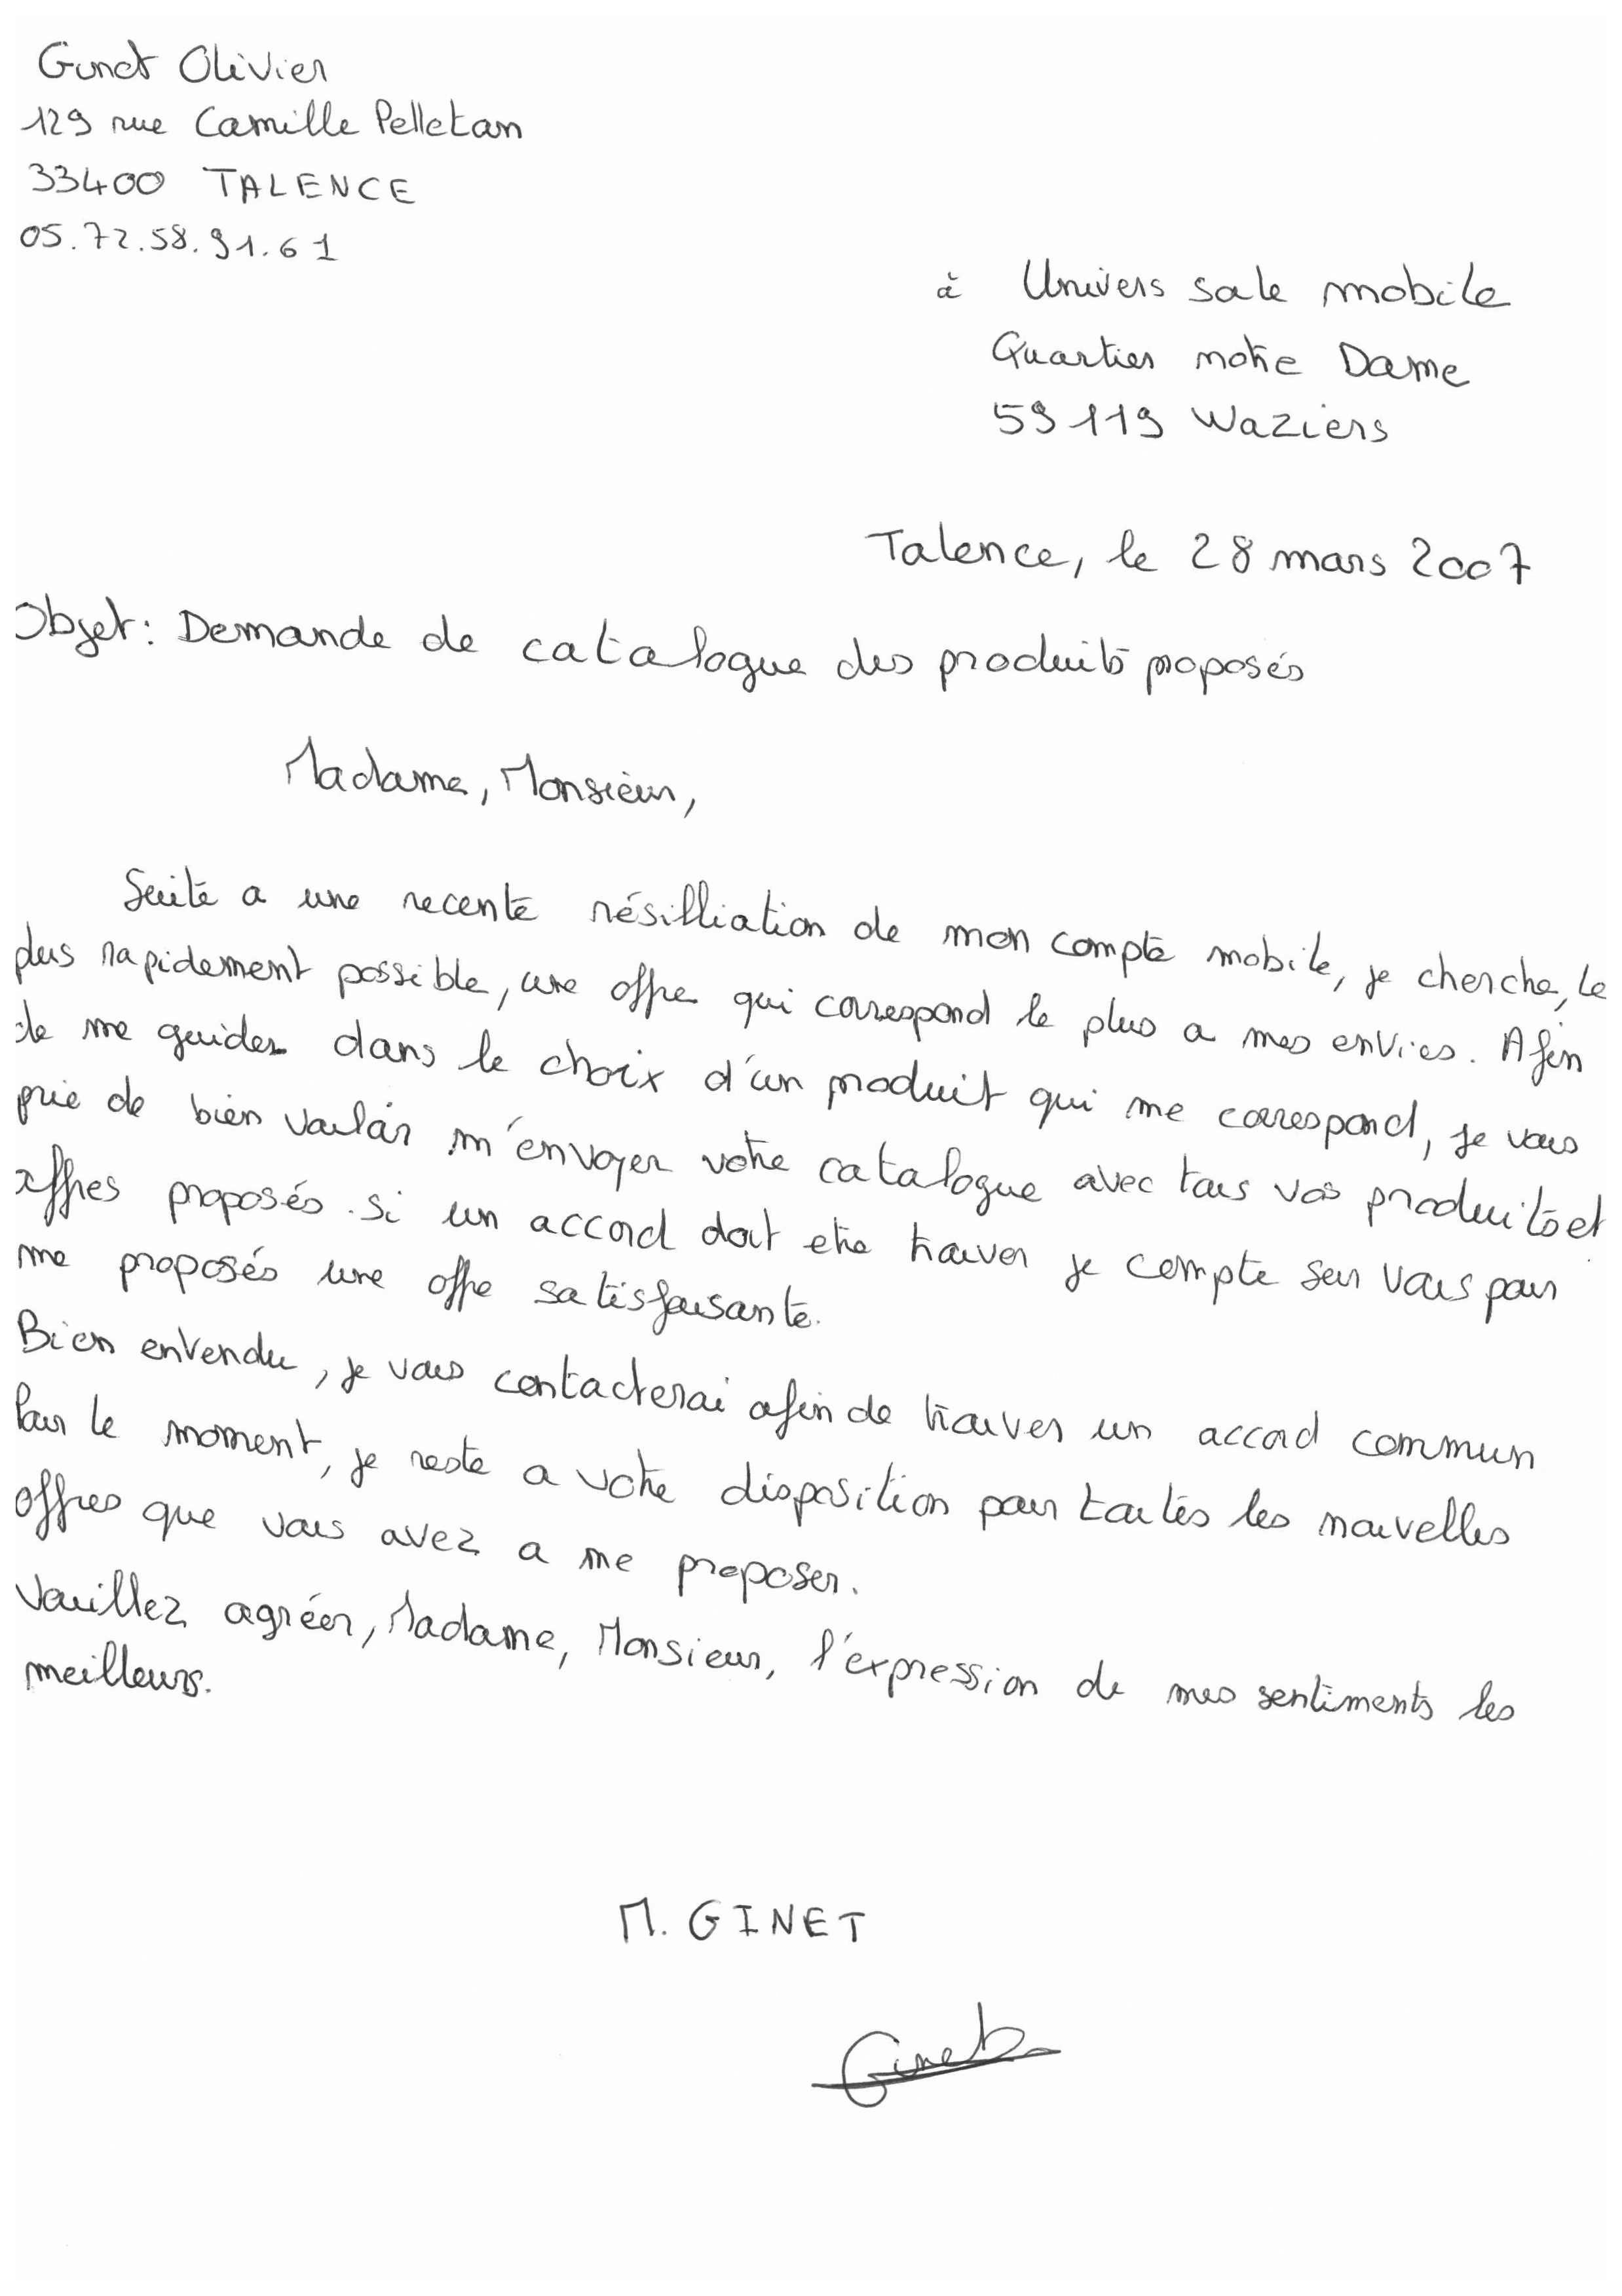 Ginet Olivier
129 rue Camille Pelletan
33400 TALENCE
05.72.58.91.61
à Univers sale mobile
Quartier notre Dame
59119 Waziers
Talence, le 28 mars 2007
Objet: Demande de catalogue des produits proposés
Madame, Monsieur,
Suite a une recente résilliation de mon compte mobile, je cherche, le
plus rapidement possible, une offre qui correspond le plus a mes envies. Afin
de me guider dans le choix d'un produit qui me correspond, je vous
prie de bien vouloir m'envoyer votre catalogue avec tous vos produits et
offres proposés. si un accord doit etre trouver je compte sur vous pour
me proposés une offre satisfaisante.
Bien entendu, je vous contacterai afin de trouver un accord commun
Pour le moment, je reste a votre disposition pour toutes les nouvelles
offres que vous avez a me proposer.
Veuillez agréer, Madame, Monsieur, l'expression de mes sentiments les
meilleurs.
M. GINET
Ginet